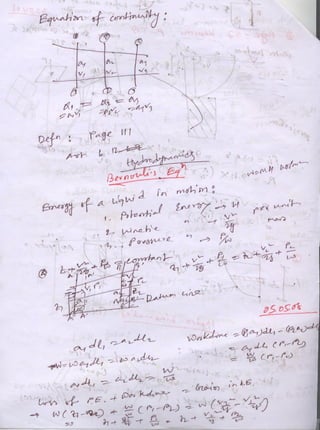 Equation of continuity :
① ② ③
a₁ a₂ a₃
v₁ v₂ v₃
Q₁ = Q₂ = Q₃
= a₁v₁ = a₂v₂ = a₃v₃
Defn : Page 111
Hydrodynamics
Bernoulli's Eqn
Energy of a liquid in motion :
1. Potential Energy → H per unit
2. Kinetic " → v²/2g mass
3. Pressure " → P/w
z + v²/2g + P/w = constant
z₁ + v₁²/2g + P₁/w = z₂ + v₂²/2g + P₂/w
Datum line
05.05.08
a₁dl₁ = a₂dl₂
W = wa₁dl₁ = wa₂dl₂
Workdone = P₁a₁dl₁ - P₂a₂dl₂
= a₁dl₁ (P₁-P₂)
a₁dl₁ = a₂dl₂ = W/w
= W/w (P₁-P₂)
Loss of P.E. + Workdone = Gain in k.E.
→ W(z₁-z₂) + W/w (P₁-P₂) = W (v₂²/2g - v₁²/2g)
⇒ z₁ + v₁²/2g + P₁/w = z₂ + v₂²/2g + P₂/w